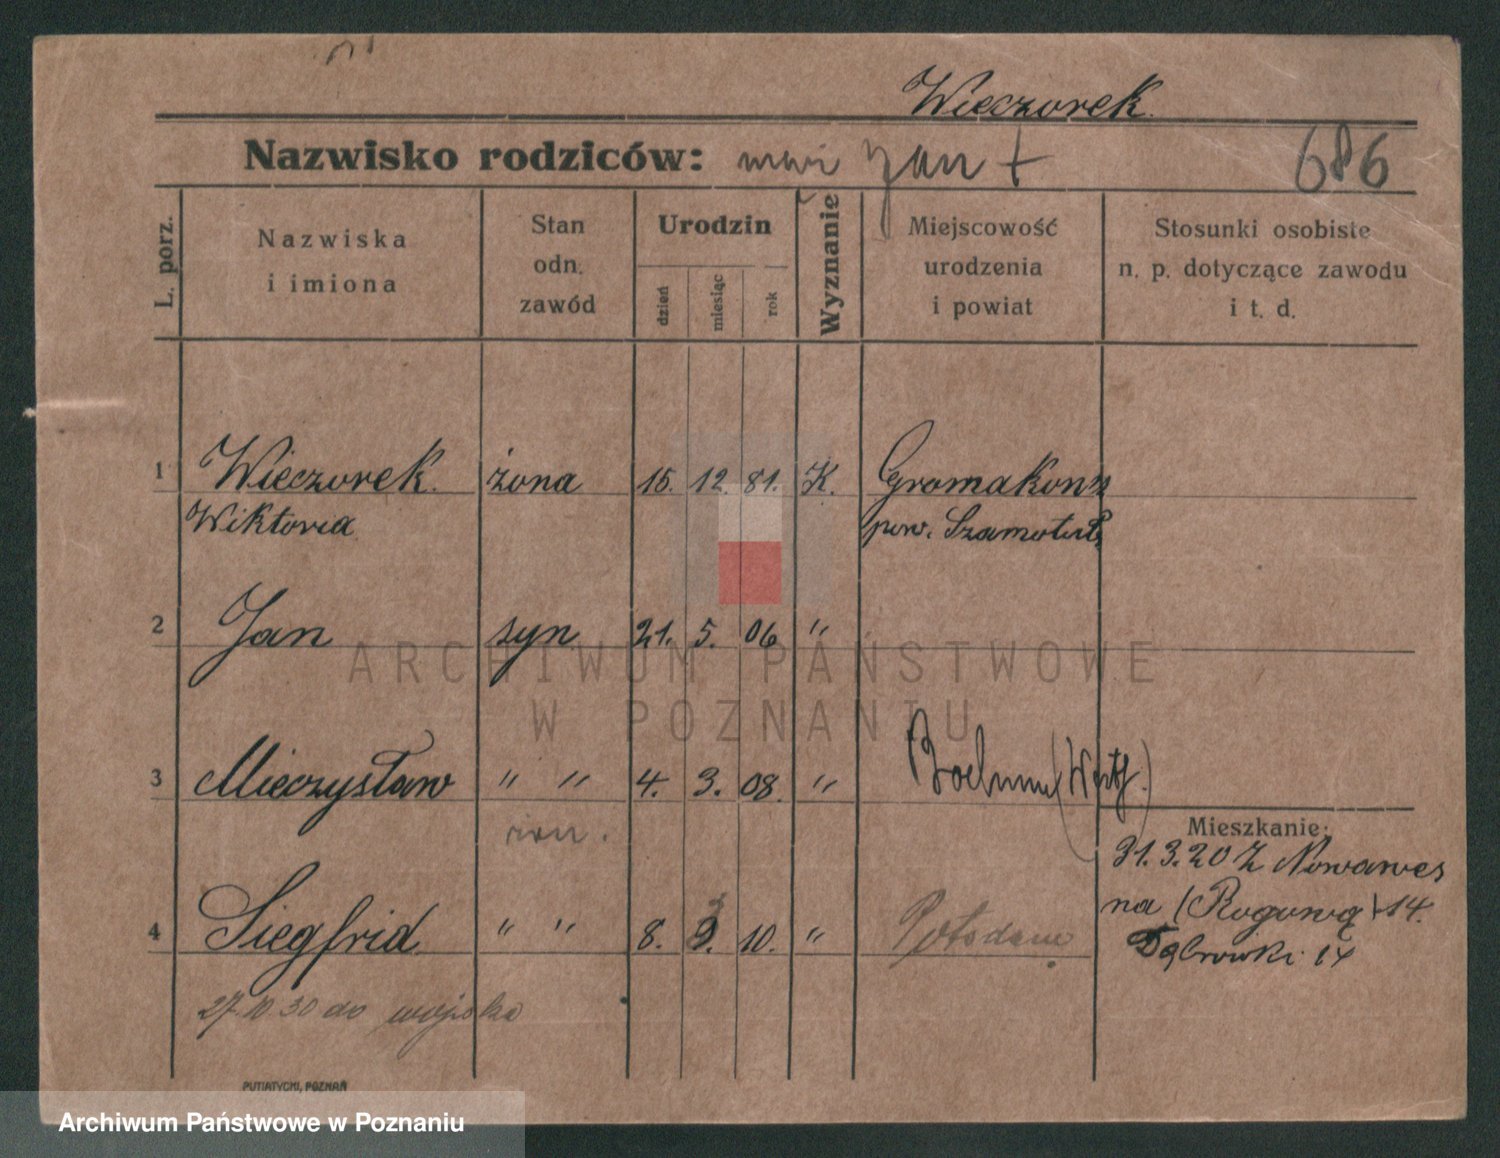 Wieczorek.
Nazwisko rodziców: Jan +
686
L. porz.
Nazwiska
i imiona
Stan
odn.
zawód
Urodzin
dzień
miesiąc
rok
Wyznanie
Miejscowość
urodzenia
i powiat
Stosunki osobiste
n. p. dotyczące zawodu
i t. d.
1 Wieczorek. żona 15. 12. 81. K.
Wiktoria pow. Szamotuł
2 Jan syn 21. 5. 06 "
3 Mieczysław " " 4. 3. 08. "
Mieszkanie:
31.3.20 Z Nowawes
na (Rogową) 14.
Dąbrowki 14
4 Siegfrid " " 8. 3. 10. " Potsdam
27.10 30 do wojska
PUTIATYCKI, POZNAŃ
ARCHIWUM PAŃSTWOWE
W POZNANIU
Archiwum Państwowe w Poznaniu